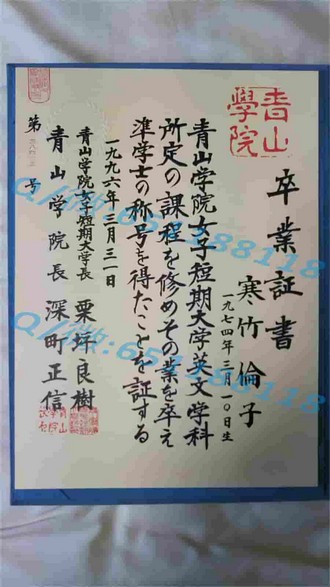 卒業証書
寒竹倫子
一九七四年二月一〇日生
青山学院女子短期大学英文学科
所定の課程を修めその業を卒え
準学士の称号を得たことを証する
一九九六年三月三一日
青山学院女子短期大学長 栗坪良樹
青山学院長 深町正信
第 号
青山
學院